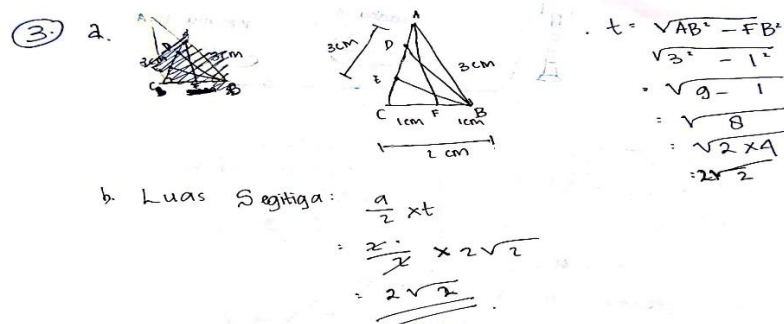 3. a.
A
3cm
3cm
C
B
A
D
3cm
E
3cm
C
F
B
1cm
1cm
2 cm
t = √AB² - FB²
√3² - 1²
= √9 - 1
= √8
= √2 x 4
= 2√2
b. Luas Segitiga : a/2 x t
= 2/2 x 2√2
= 2√2